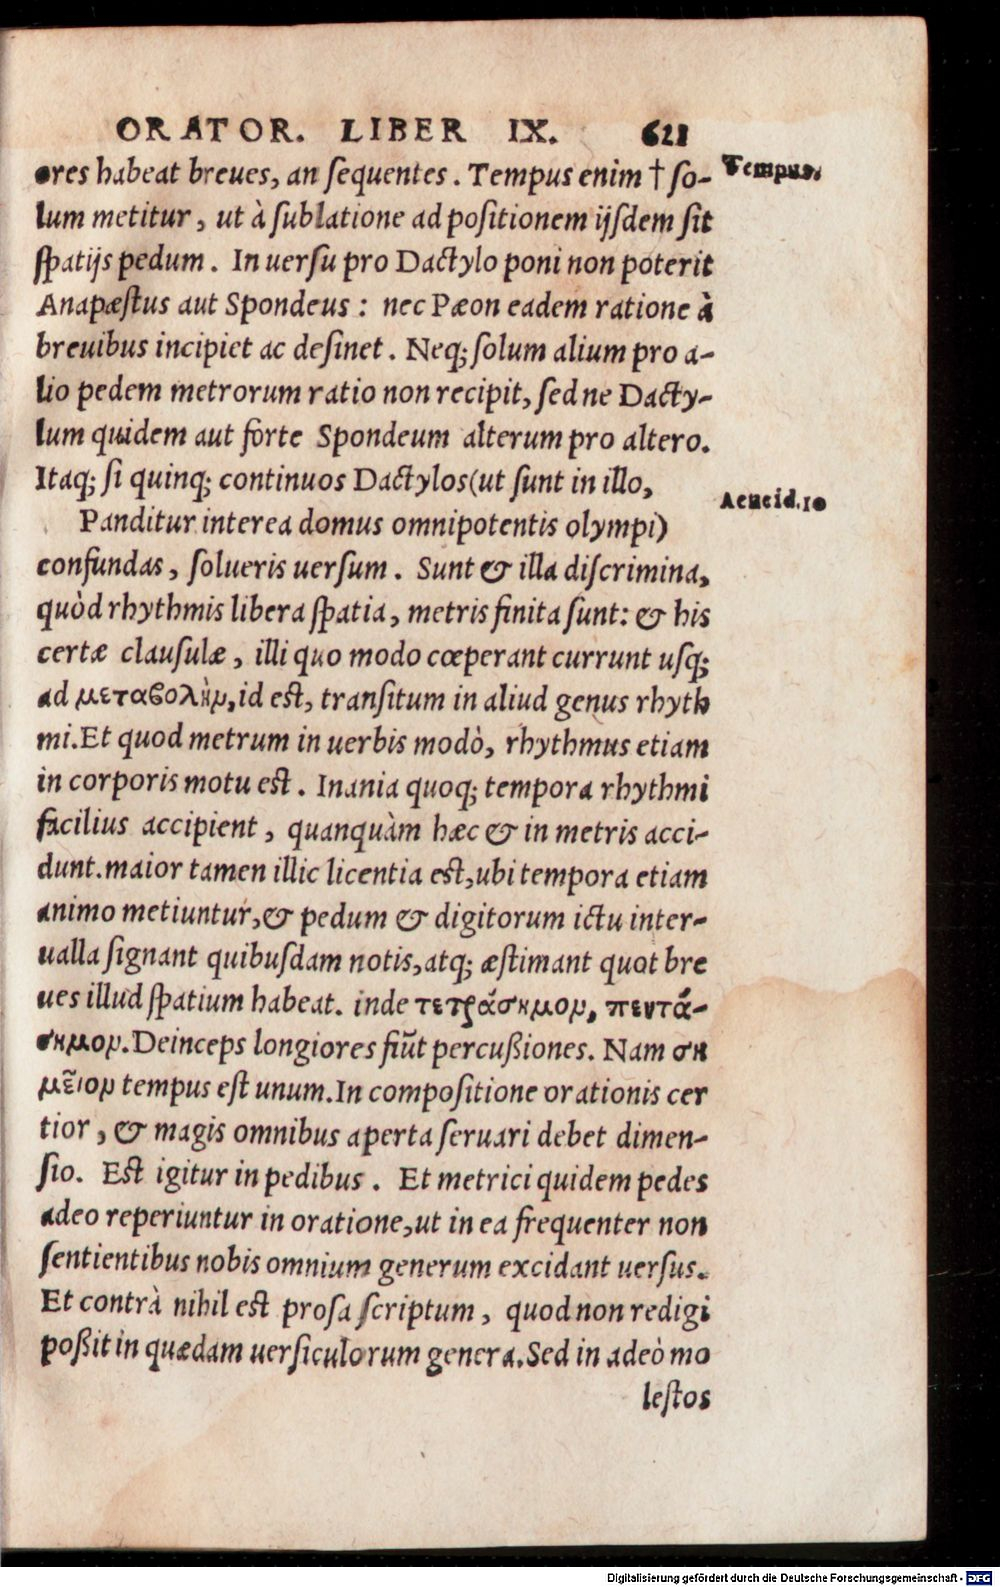 ORATOR. LIBER IX. 621
ores habeat breues, an sequentes. Tempus enim † so-
Tempus.
lum metitur, ut à sublatione ad positionem ijsdem sit
spatijs pedum. In uersu pro Dactylo poni non poterit
Anapæstus aut Spondeus: nec Pæon eadem ratione à
breuibus incipiet ac desinet. Neq; solum alium pro a-
lio pedem metrorum ratio non recipit, sed ne Dacty-
lum quidem aut forte Spondeum alterum pro altero.
Itaq; si quinq; continuos Dactylos(ut sunt in illo,
Aeneid.10
Panditur interea domus omnipotentis olympi)
confundas, solueris uersum. Sunt & illa discrimina,
quòd rhythmis libera spatia, metris finita sunt: & his
certæ clausulæ, illi quo modo cœperant currunt usq;
ad μεταβολὴν, id est, transitum in aliud genus rhyth
mi. Et quod metrum in uerbis modò, rhythmus etiam
in corporis motu est. Inania quoq; tempora rhythmi
facilius accipient, quanquàm hæc & in metris acci-
dunt. maior tamen illic licentia est, ubi tempora etiam
animo metiuntur, & pedum & digitorum ictu inter-
ualla signant quibusdam notis, atq; æstimant quot bre
ues illud spatium habeat. inde τετράσημον, πεντά-
σημον. Deinceps longiores fiũt percußiones. Nam ση
μεῖον tempus est unum. In compositione orationis cer
tior, & magis omnibus aperta seruari debet dimen-
sio. Est igitur in pedibus. Et metrici quidem pedes
adeo reperiuntur in oratione, ut in ea frequenter non
sentientibus nobis omnium generum excidant uersus.
Et contrà nihil est prosa scriptum, quod non redigi
poßit in quædam uersiculorum genera. Sed in adeò mo
lestos
Digitalisierung gefördert durch die Deutsche Forschungsgemeinschaft - DFG